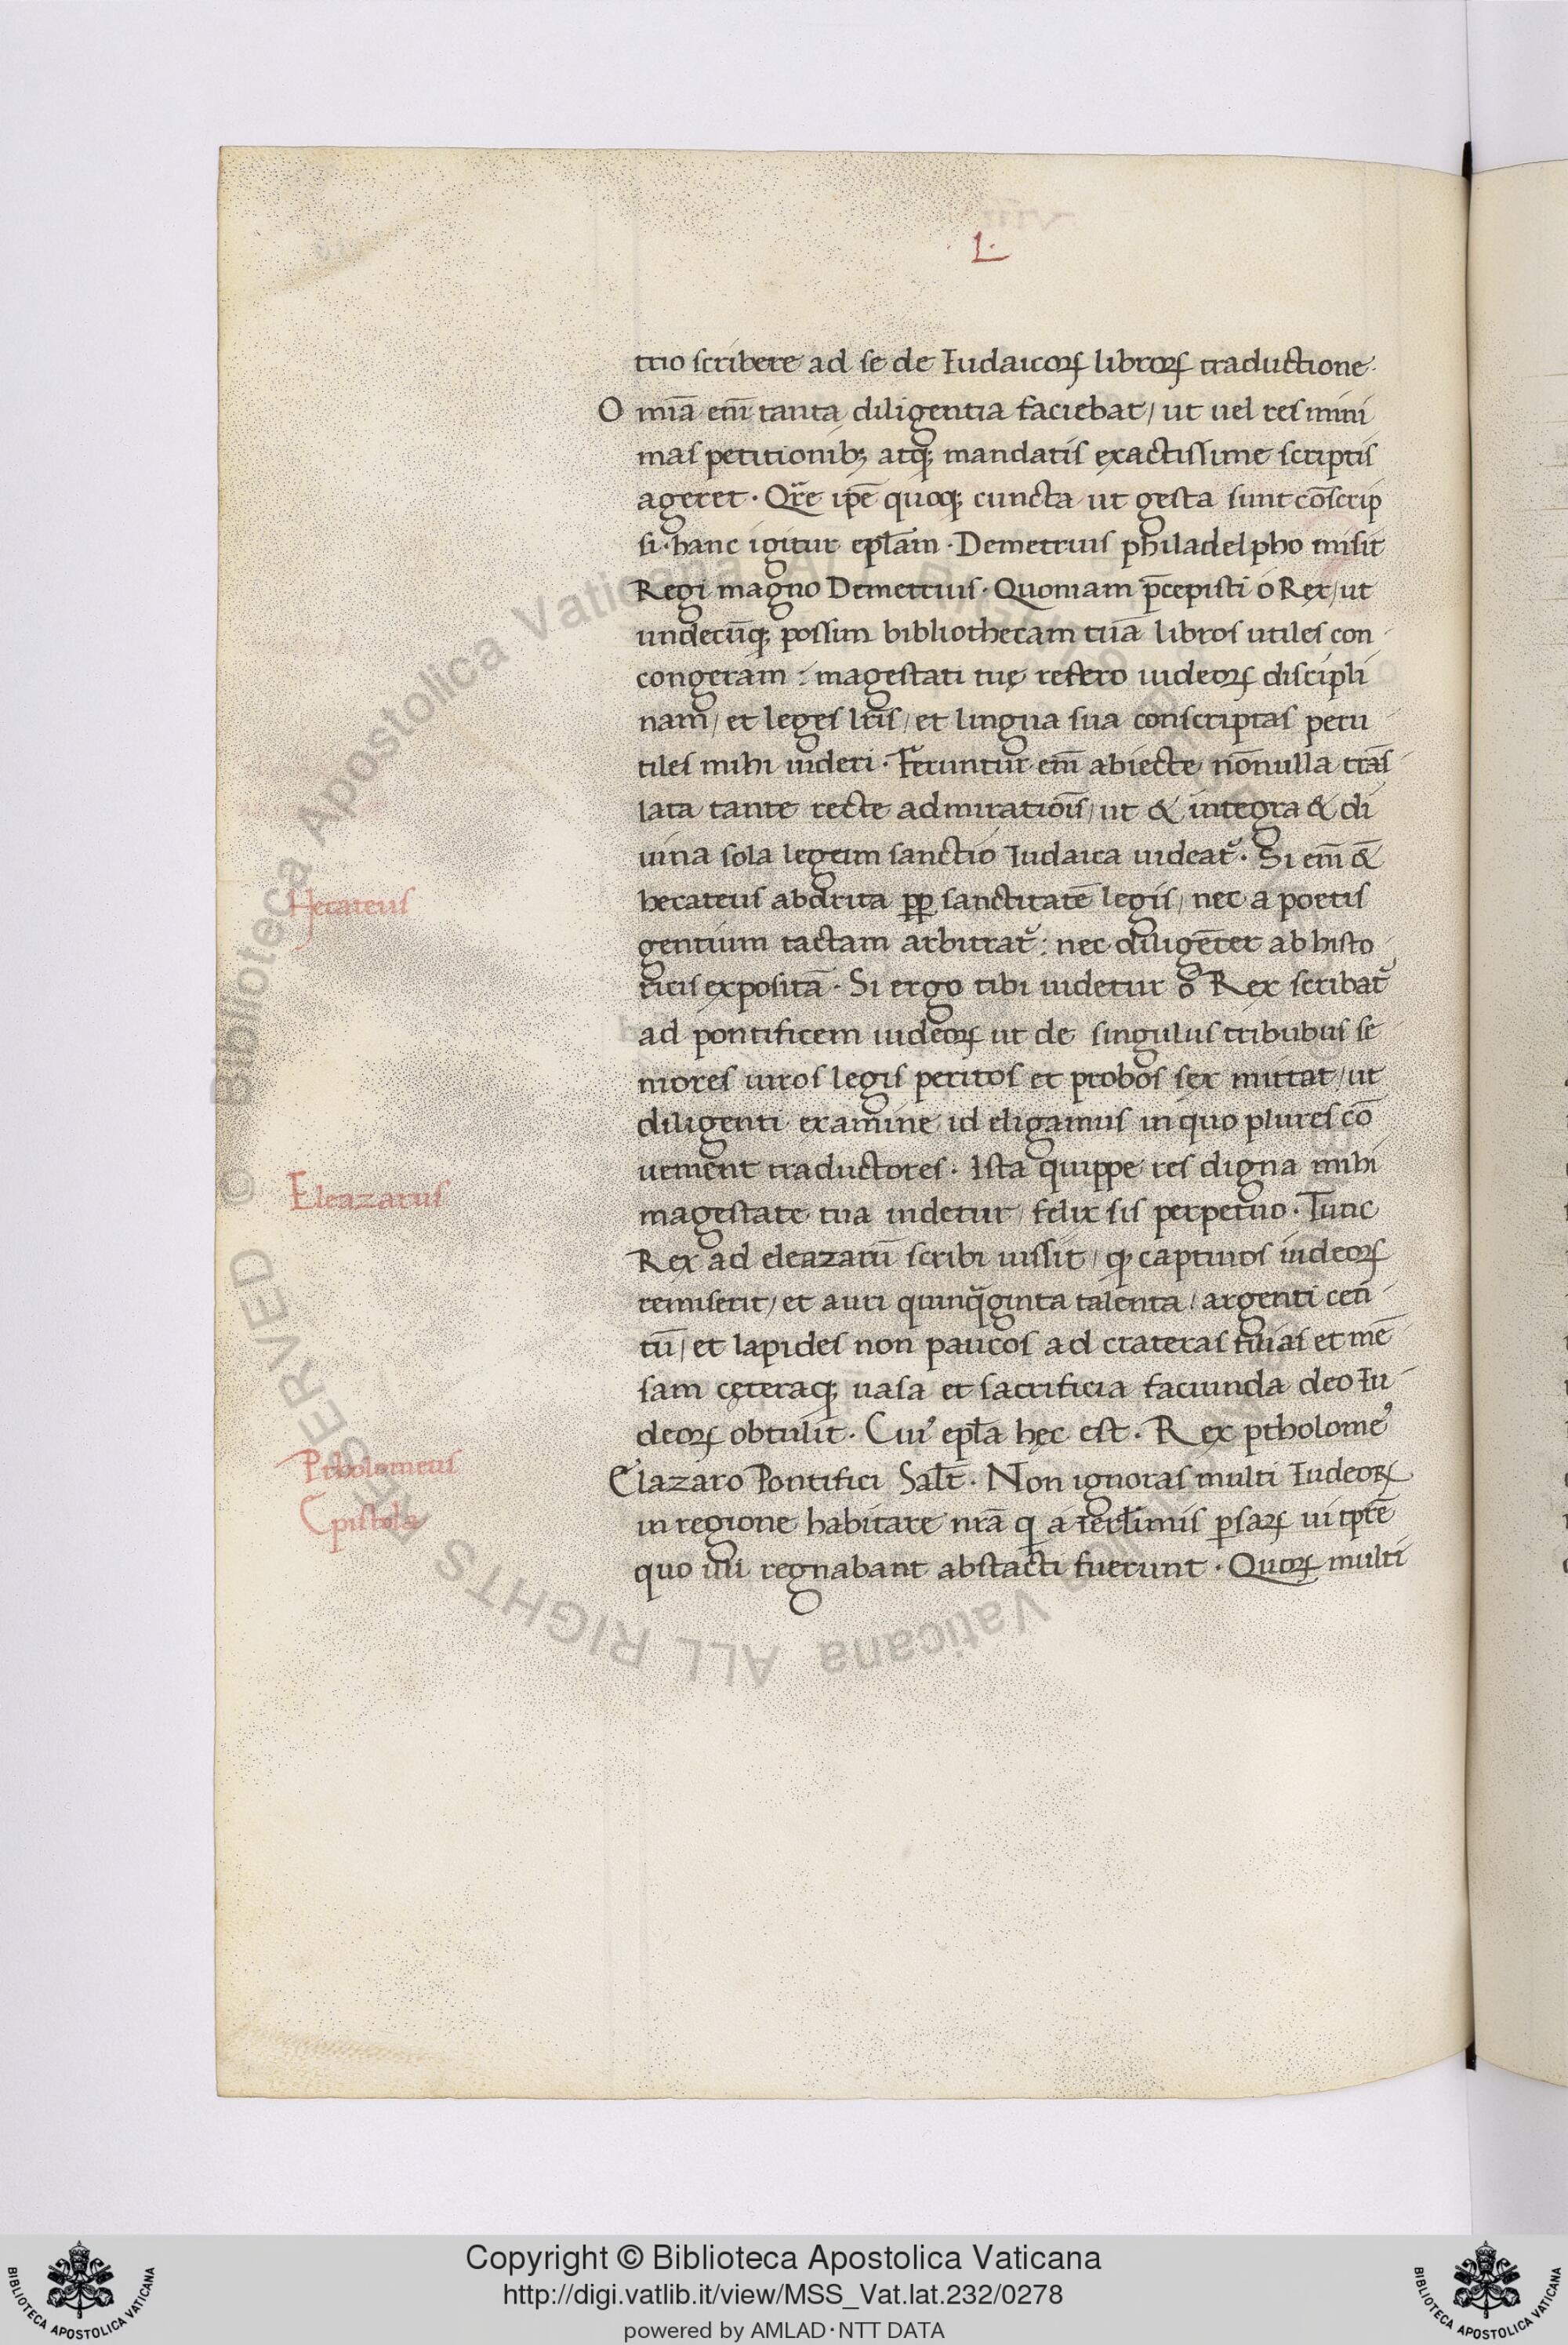 L.
trio scribere ad se de Iudaicoꝝ libroꝝ traductione.
O mīa em̄ tanta diligentia faciebat / ut uel res mini
mas petitionibꝫ atqꝫ mandatis exactissime scriptis
ageret · Qr̄e ip̄e quoqꝫ cuncta ut gesta sunt cōscrip
si · hanc igitur epl̄am · Demetrius philadelpho misit
Regi magno Demetrius · Quoniam p̄cepisti o Rex / ut
undecūqꝫ possim bibliothecam tuā libros utiles con
congeram : magestati tuę refero iudeoꝝ discipli
nam / et leges lr̄is / et lingua sua conscriptas peru
tiles mihi uideri · Feruntur em̄ abiecte nōnulla trās
lata tante recte admiratiōis / ut & integra & di
uina sola legum sanctio Iudaica uideat᷑ · Si em̄ &
Hecateus
hecateus abdrita ꝓꝑ sanctitatē legis / nec a poetis
gentium tactam arbitrat᷑ : nec diligēter ab histo
ricis expositā · Si ergo tibi uidetur o Rex scribat᷑
ad pontificem iudeoꝝ ut de singulis tribubus se
niores uiros legis peritos et probos sex mittat / ut
diligenti examine id eligamus in quo plures cō
uenient traductores · Ista quippe res digna mihi
Eleazarus
magestate tua uidetur / felix sis perpetuo · Tunc
Rex ad eleazarū scribi iussit / qꝫ captiuos iudeoꝝ
remiserit / et auri quinq̄ginta talenta / argenti cen
tū / et lapides non paucos ad crateras fiuias et mē
sam ceteraqꝫ uasa et sacrificia faciunda deo Iu
deoꝝ obtulit · Cui᾽ epl̄a hęc est · Rex ptholome᾽
Ptholomeus
Elazaro Pontifici Salt̄ · Non ignoras multi Iudeoꝝ
Epistola
in regione habitare nr̄a q a ierl̄imis ꝑsaꝝ ui tp̄rē
quo illi regnabant abstacti fuerunt · Quoꝝ multi
© Biblioteca Apostolica Vaticana ALL RIGHTS RESERVED
Copyright © Biblioteca Apostolica Vaticana
http://digi.vatlib.it/view/MSS_Vat.lat.232/0278
powered by AMLAD·NTT DATA
BIBLIOTECA APOSTOLICA VATICANA
BIBLIOTECA APOSTOLICA VATICANA